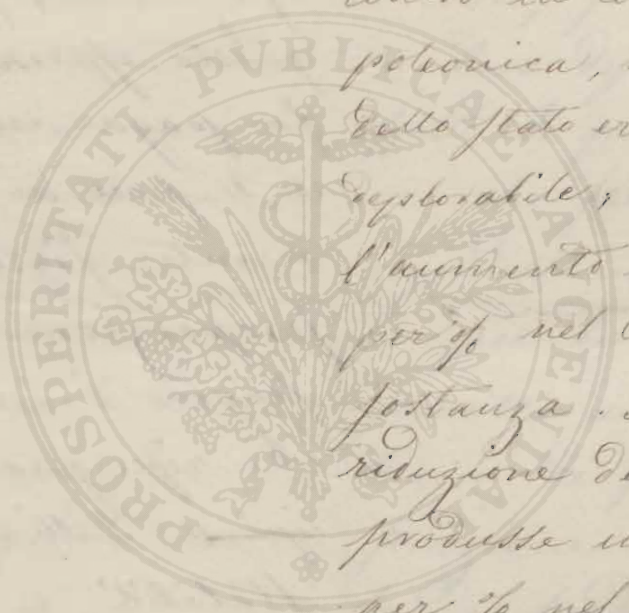 PROSPERITATI PVBLICAE AVGENDAE
poleonica,
dello stato er
deplorabile;
l'aumento
per % nel
sostanza.
riduzione de
produsse u
per % nel